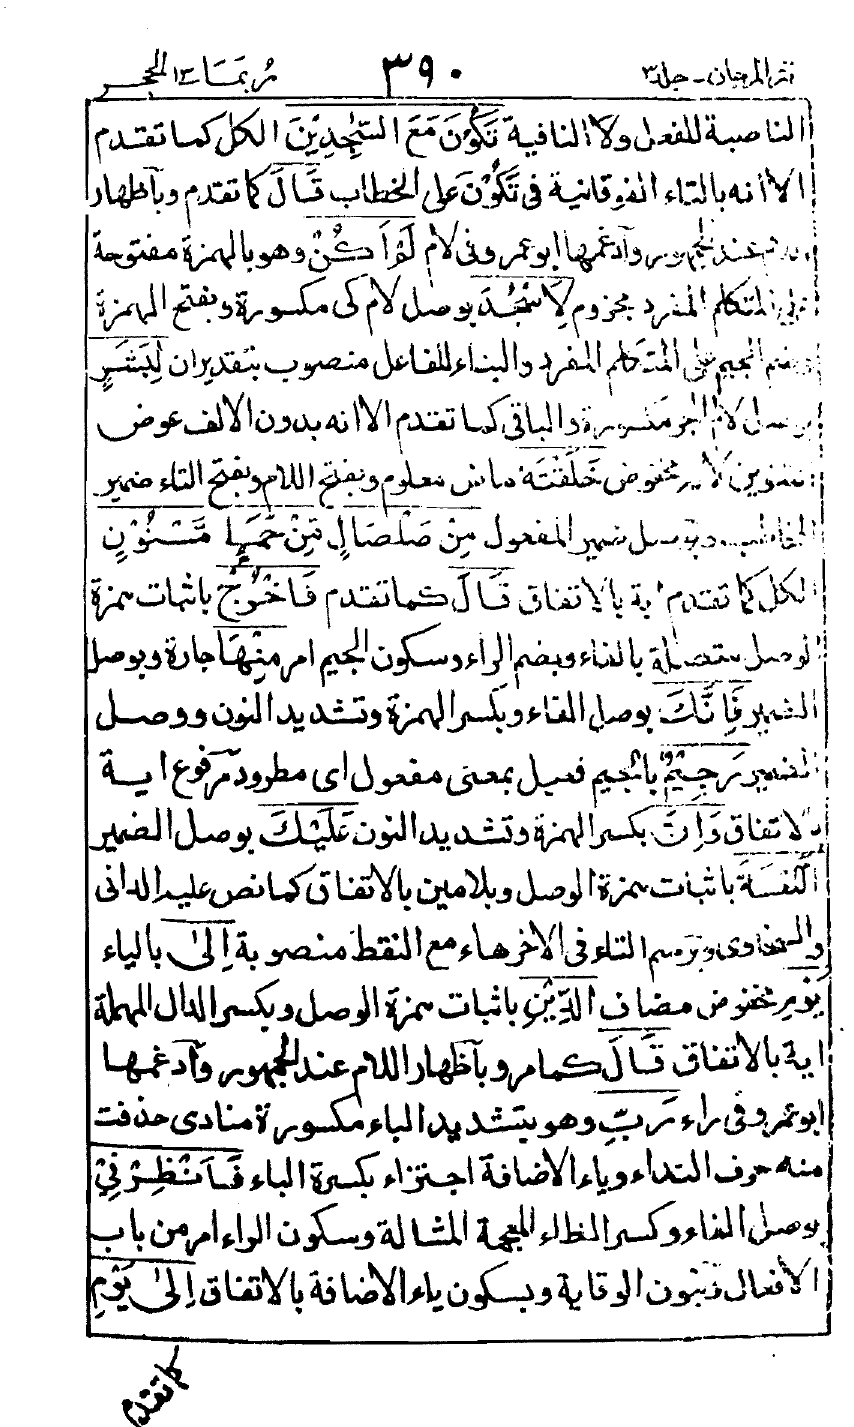 نثر المرجان - جلد ٣ ٣٩٠ رُبَمَا ١٤ الحجر
الناصبة للفعل ولا النافية تَكُوْنَ مَعَ السّٰجِدِيْنَ الكل كما تقدم
الا انه بالتاء الفوقانية فى تَكُوْنَ على الخطاب قَالَ كما تقدم وباظهار
عند الجمهور وادغمها ابو عمرو فى لام لَمْ اَكُنْ وهو بالهمزة مفتوحة
على المتكلم المفرد مجزوم لِاَسْجُدَ بوصل لام كى مكسورة وبفتح الهمزة
وضم الجيم على المتكلم المفرد والبناء للفاعل منصوب بتقدير ان لِبَشَرٍ
بوصل لام الجر مكسورة والباقى كما تقدم الا انه بدون الالف عوض
التنوين لانه مخفوض خَلَقْتَهٗ ماض معلوم وبفتح اللام وبفتح التاء ضمير
المخاطب وبوصل ضمير المفعول مِنْ صَلْصَالٍ مِّنْ حَمَاٍ مَّسْنُوْنٍ
الكل كما تقدم اية بالاتفاق قَالَ كما تقدم فَاخْرُجْ باثبات همزة
الوصل متصلة بالفاء وبضم الراء وسكون الجيم امر مِنْهَا جارة وبوصل
الضمير فَاِنَّكَ بوصل الفاء وبكسر الهمزة وتشديد النون ووصل
الضمير رَجِيْمٌ بالجيم فعيل بمعنى مفعول اى مطرود مرفوع اية
بالاتفاق وَاِنَّ بكسر الهمزة وتشديد النون عَلَيْكَ بوصل الضمير
اللَّعْنَةَ باثبات همزة الوصل وبلامين بالاتفاق كما نص عليه الدانى
والسخاوى وبرسم التاء فى الاخر هاء مع النقط منصوبة اِلٰى بالياء
يَوْمِ مخفوض مضاف الدِّيْنِ باثبات همزة الوصل وبكسر الدال المهملة
اية بالاتفاق قَالَ كما مر وباظهار اللام عند الجمهور وادغمها
ابو عمرو فى راء رَبِّ وهو بتشديد الباء مكسورة منادى حذفت
منه حرف النداء وياء الاضافة اجتزاء بكسرة الباء فَاَنْظِرْنِيْ
بوصل الفاء وكسر الظاء المعجمة المشالة وسكون الراء امر من باب
الافعال وبنون الوقاية وبسكون ياء الاضافة بالاتفاق اِلٰى يَوْمِ
كما تقدم